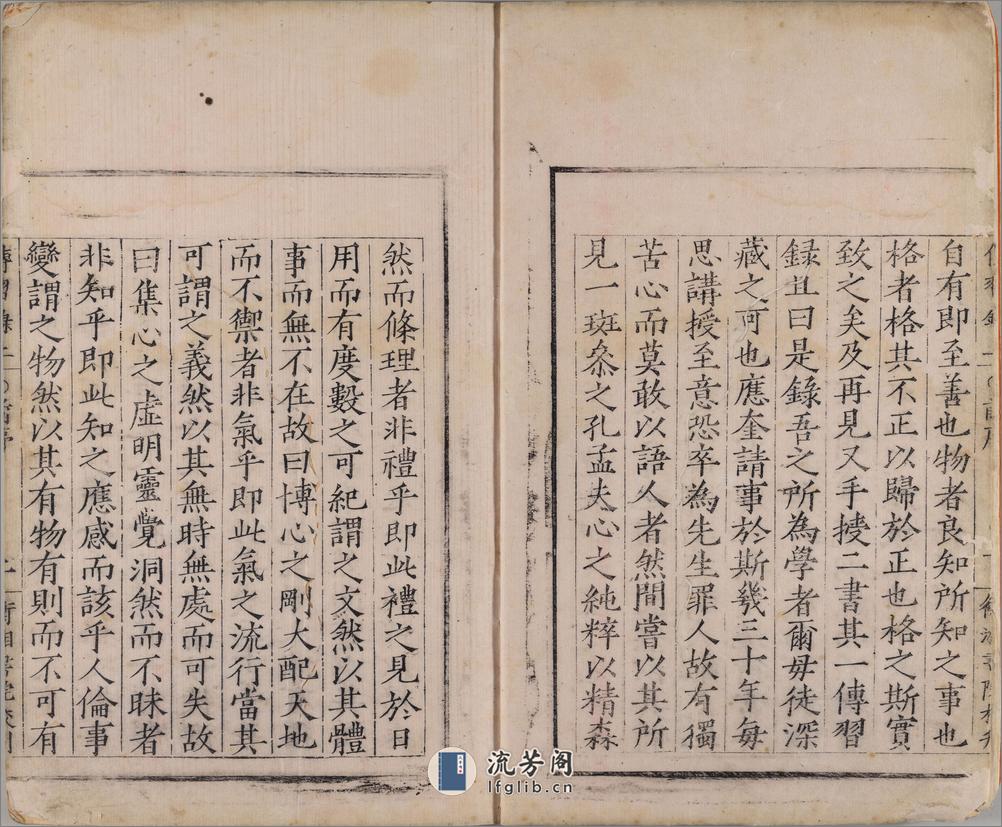 自有即至善也物者良知所知之事也
格者格其不正以歸於正也格之斯實
致之矣及再見又手授二書其一傳習
録且曰是錄吾之所為學者爾毋徒深
藏之可也應奎請事於斯幾三十年每
思講授至意恐卒為先生罪人故有獨
苦心而莫敢以語人者然間嘗以其所
見一斑叅之孔孟夫心之純粹以精森
然而條理者非禮乎即此禮之見於日
用而有度數之可紀謂之文然以其體
事而無不在故曰博心之剛大配天地
而不禦者非氣乎即此氣之流行當其
可謂之義然以其無時無處而可失故
曰集心之虛明靈覺洞然而不昧者
非知乎即此知之應感而該乎人倫事
變謂之物然以其有物有則而不可有
流芳阁
lfglib.cn